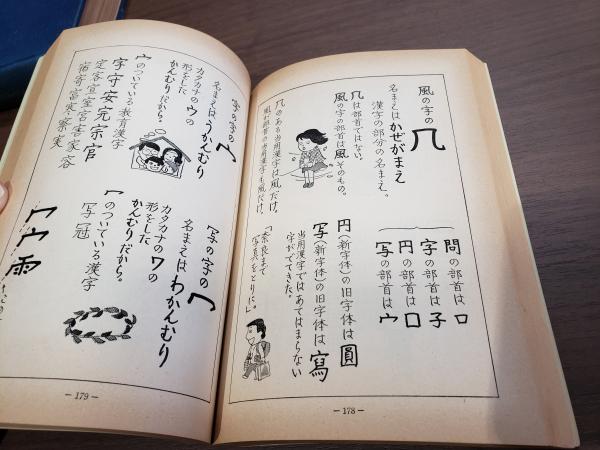 風の字の⺇
名まえはかぜがまえ
漢字の部分の名まえ。
⺇は部首ではない。
風の字の部首は風そのもの。
⺇のある当用漢字は風だけ。
風が部首の当用漢字も風だけ。
問の部首は口
字の部首は子
円の部首は囗
写の部首は宀
円(新字体)の旧字体は圓
写(新字体)の旧字体は寫
当用漢字ではあてはまらない
字がでてきた。
「奈良まで
写真をとりに。」
— 178 —
字の字の宀
名まえはうかんむり
カタカナのウの
形をした
かんむりだから。
宀のついている教育漢字
字守安完宗官
定客宣室宮害家容
宿寄富寒察実
写の字の冖
名まえはわかんむり
カタカナのワの
形をした
かんむりだから。
冖のついている漢字
写冠
冖宀雨
— 179 —